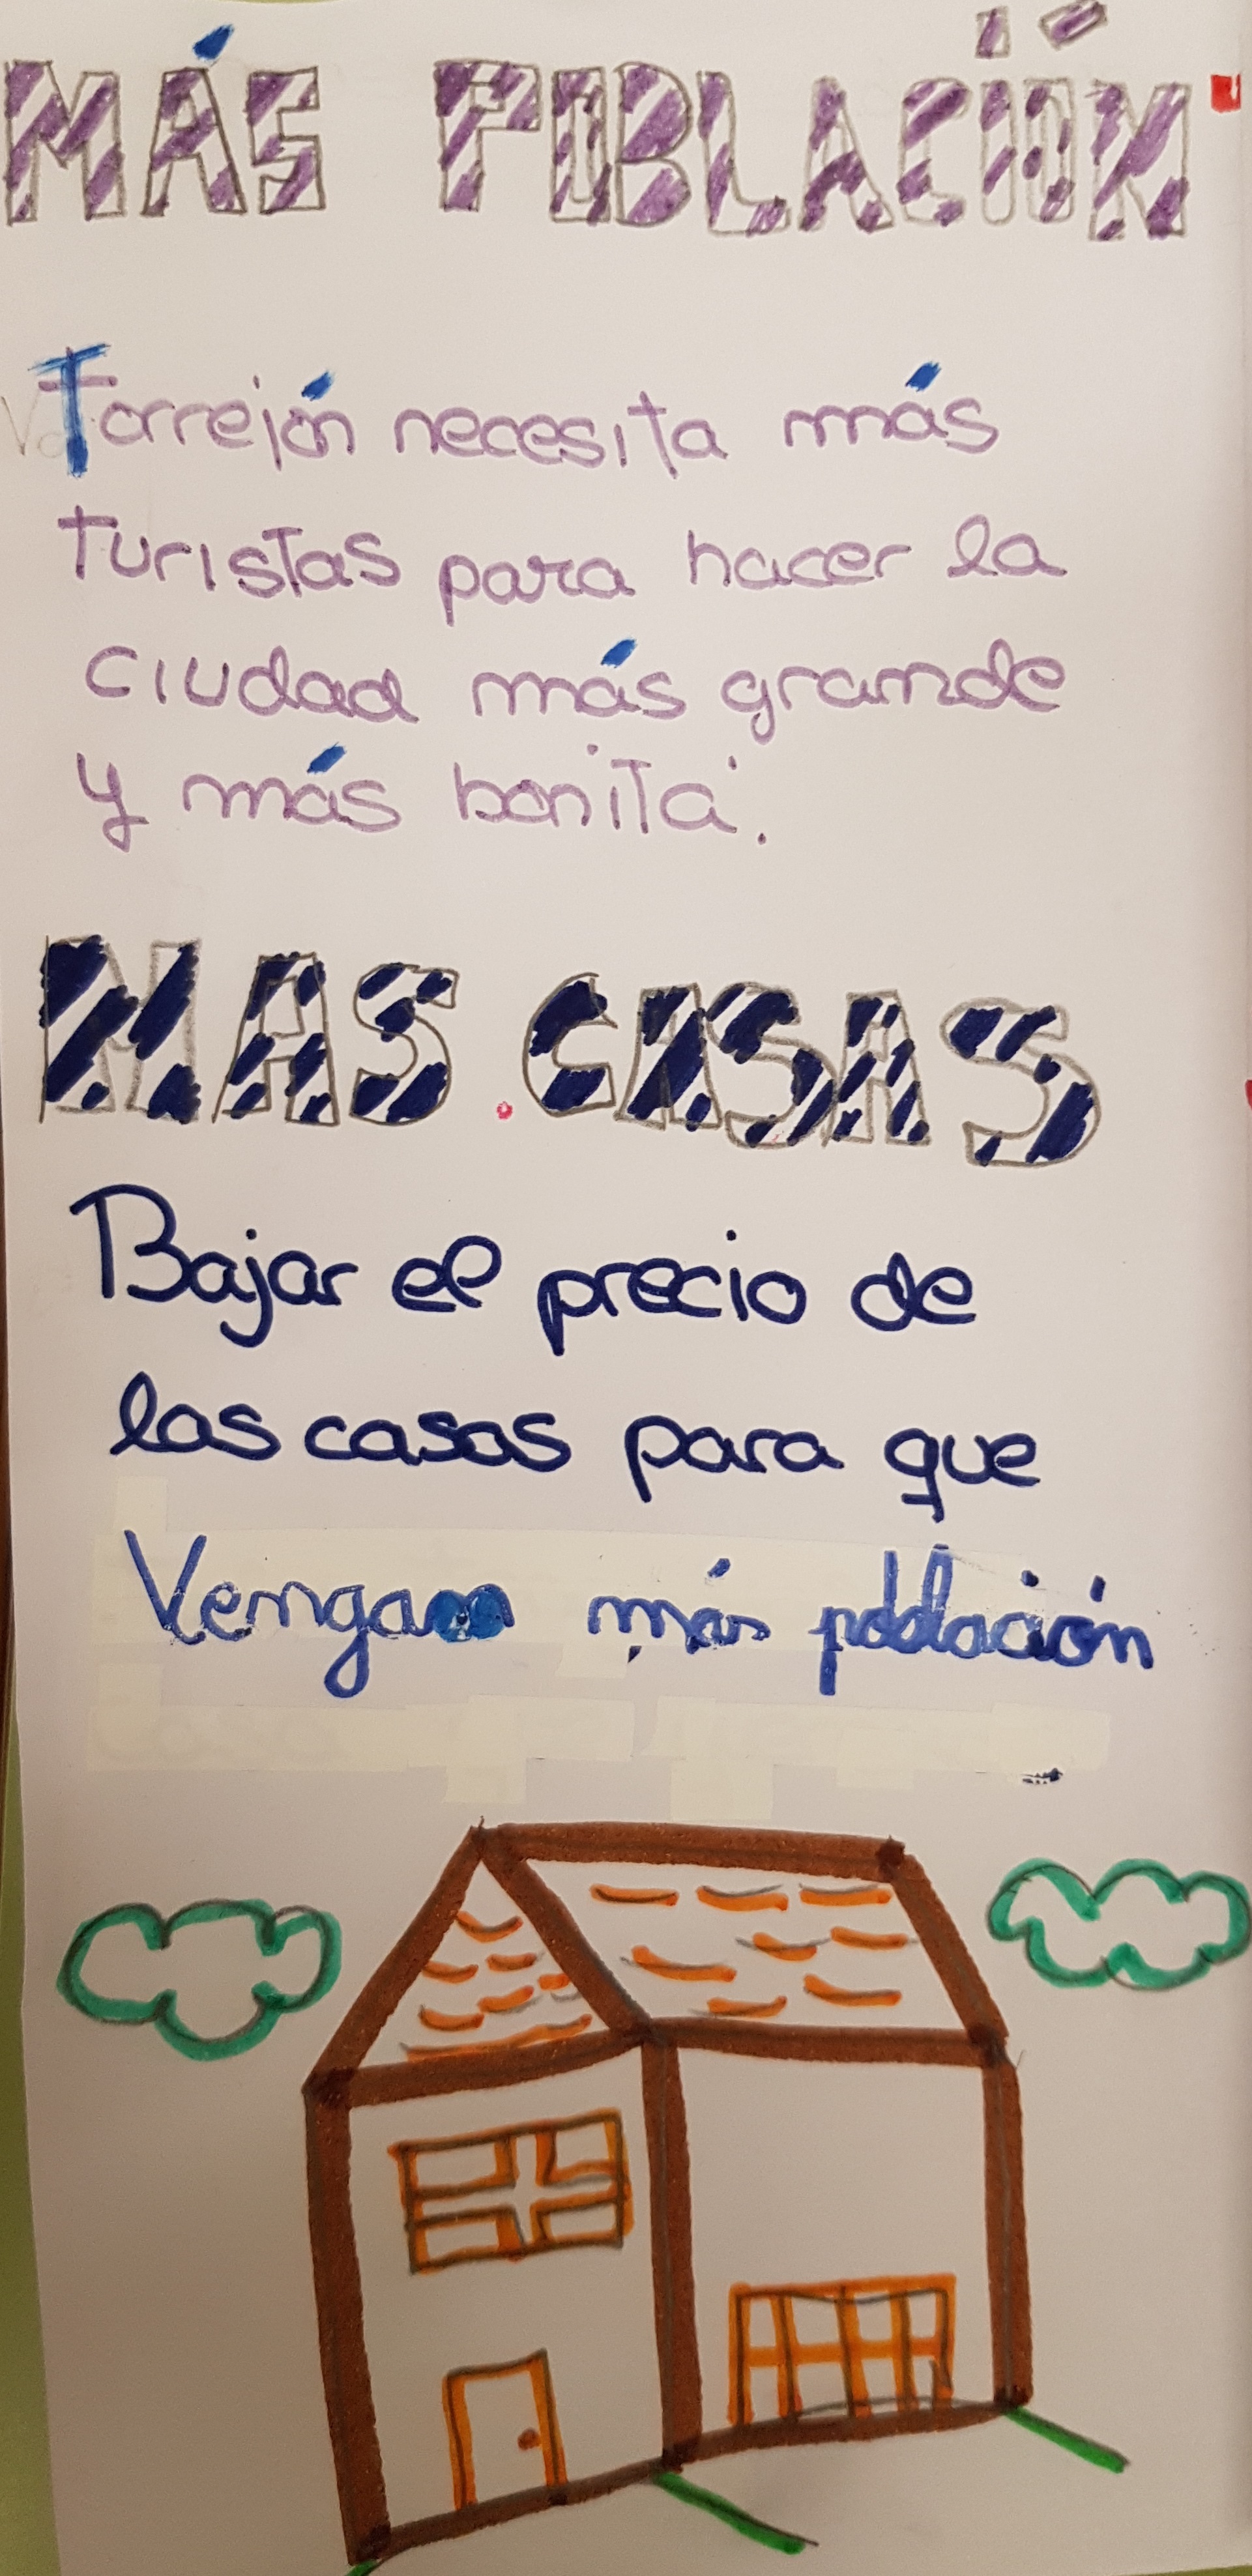 MÁS POBLACIÓN
Torrejón necesita más
turistas para hacer la
ciudad más grande
y más bonita.
MAS CASAS
Bajar el precio de
las casas para que
Venga más población